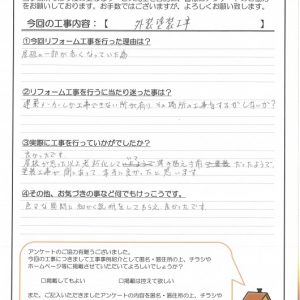 をお願いしております。お手数ではございますが、よろしくお願い致します。
今回の工事内容：【 外装塗装工事 】
①今回リフォーム工事を行った理由は？
屋根の一部が赤くなっていた為
②リフォーム工事を行うに当たり迷った事は？
建築メーカーしか工事できない所が有り、その場所の工事をするかしないか？
③実際に工事を行っていかがでしたか？
良かったです。
屋根が思った以上老朽化して
塗装工事が 本当に良かったと思います
④その他、お気づきの事など何でもけっこうです。
色々な質問に細かく説明をしてもらえ、良かったです。
アンケートのご協力有難うございました。
今回の工事につきまして工事事例紹介として匿名・居住市の上、チラシや
ホームページ等に掲載させていただいてよろしいでしょうか？
□掲載してもよい □掲載は控えて欲しい
また、ご記入いただきましたアンケートの内容を匿名・居住市の上、チラシ